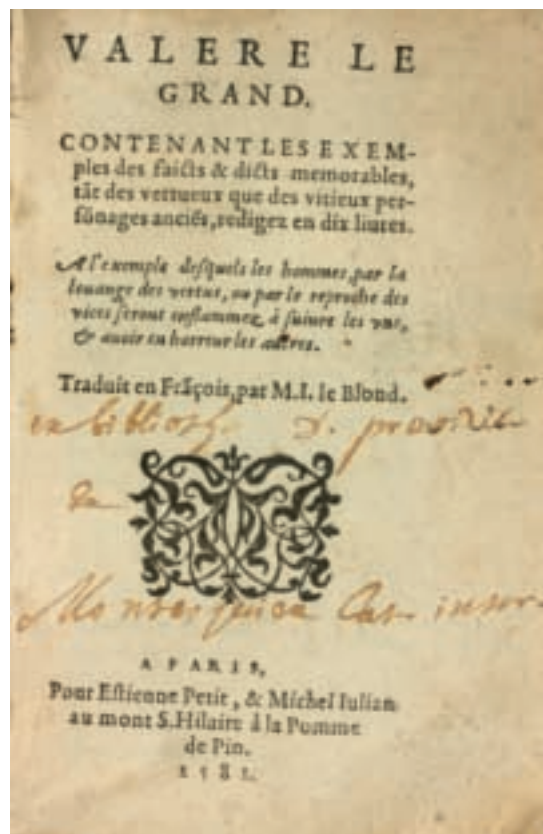 VALERE LE
GRAND.
CONTENANT LES EXEM-
ples des faicts & dicts memorables,
tãt des vertueux que des vitieux per-
sõnages anciẽs, redigez en dix liures.
A l'exemple desquels les hommes, par la
louange des vertus, ou par le reproche des
vices seront enflammez à suiure les vns,
& auoir en horreur les autres.
Traduit en Frãçois, par M.I. le Blond.
ex biblioth. D.
A PARIS,
Pour Estienne Petit, & Michel Iulian
au mont S. Hilaire à la Pomme
de Pin.
1581.